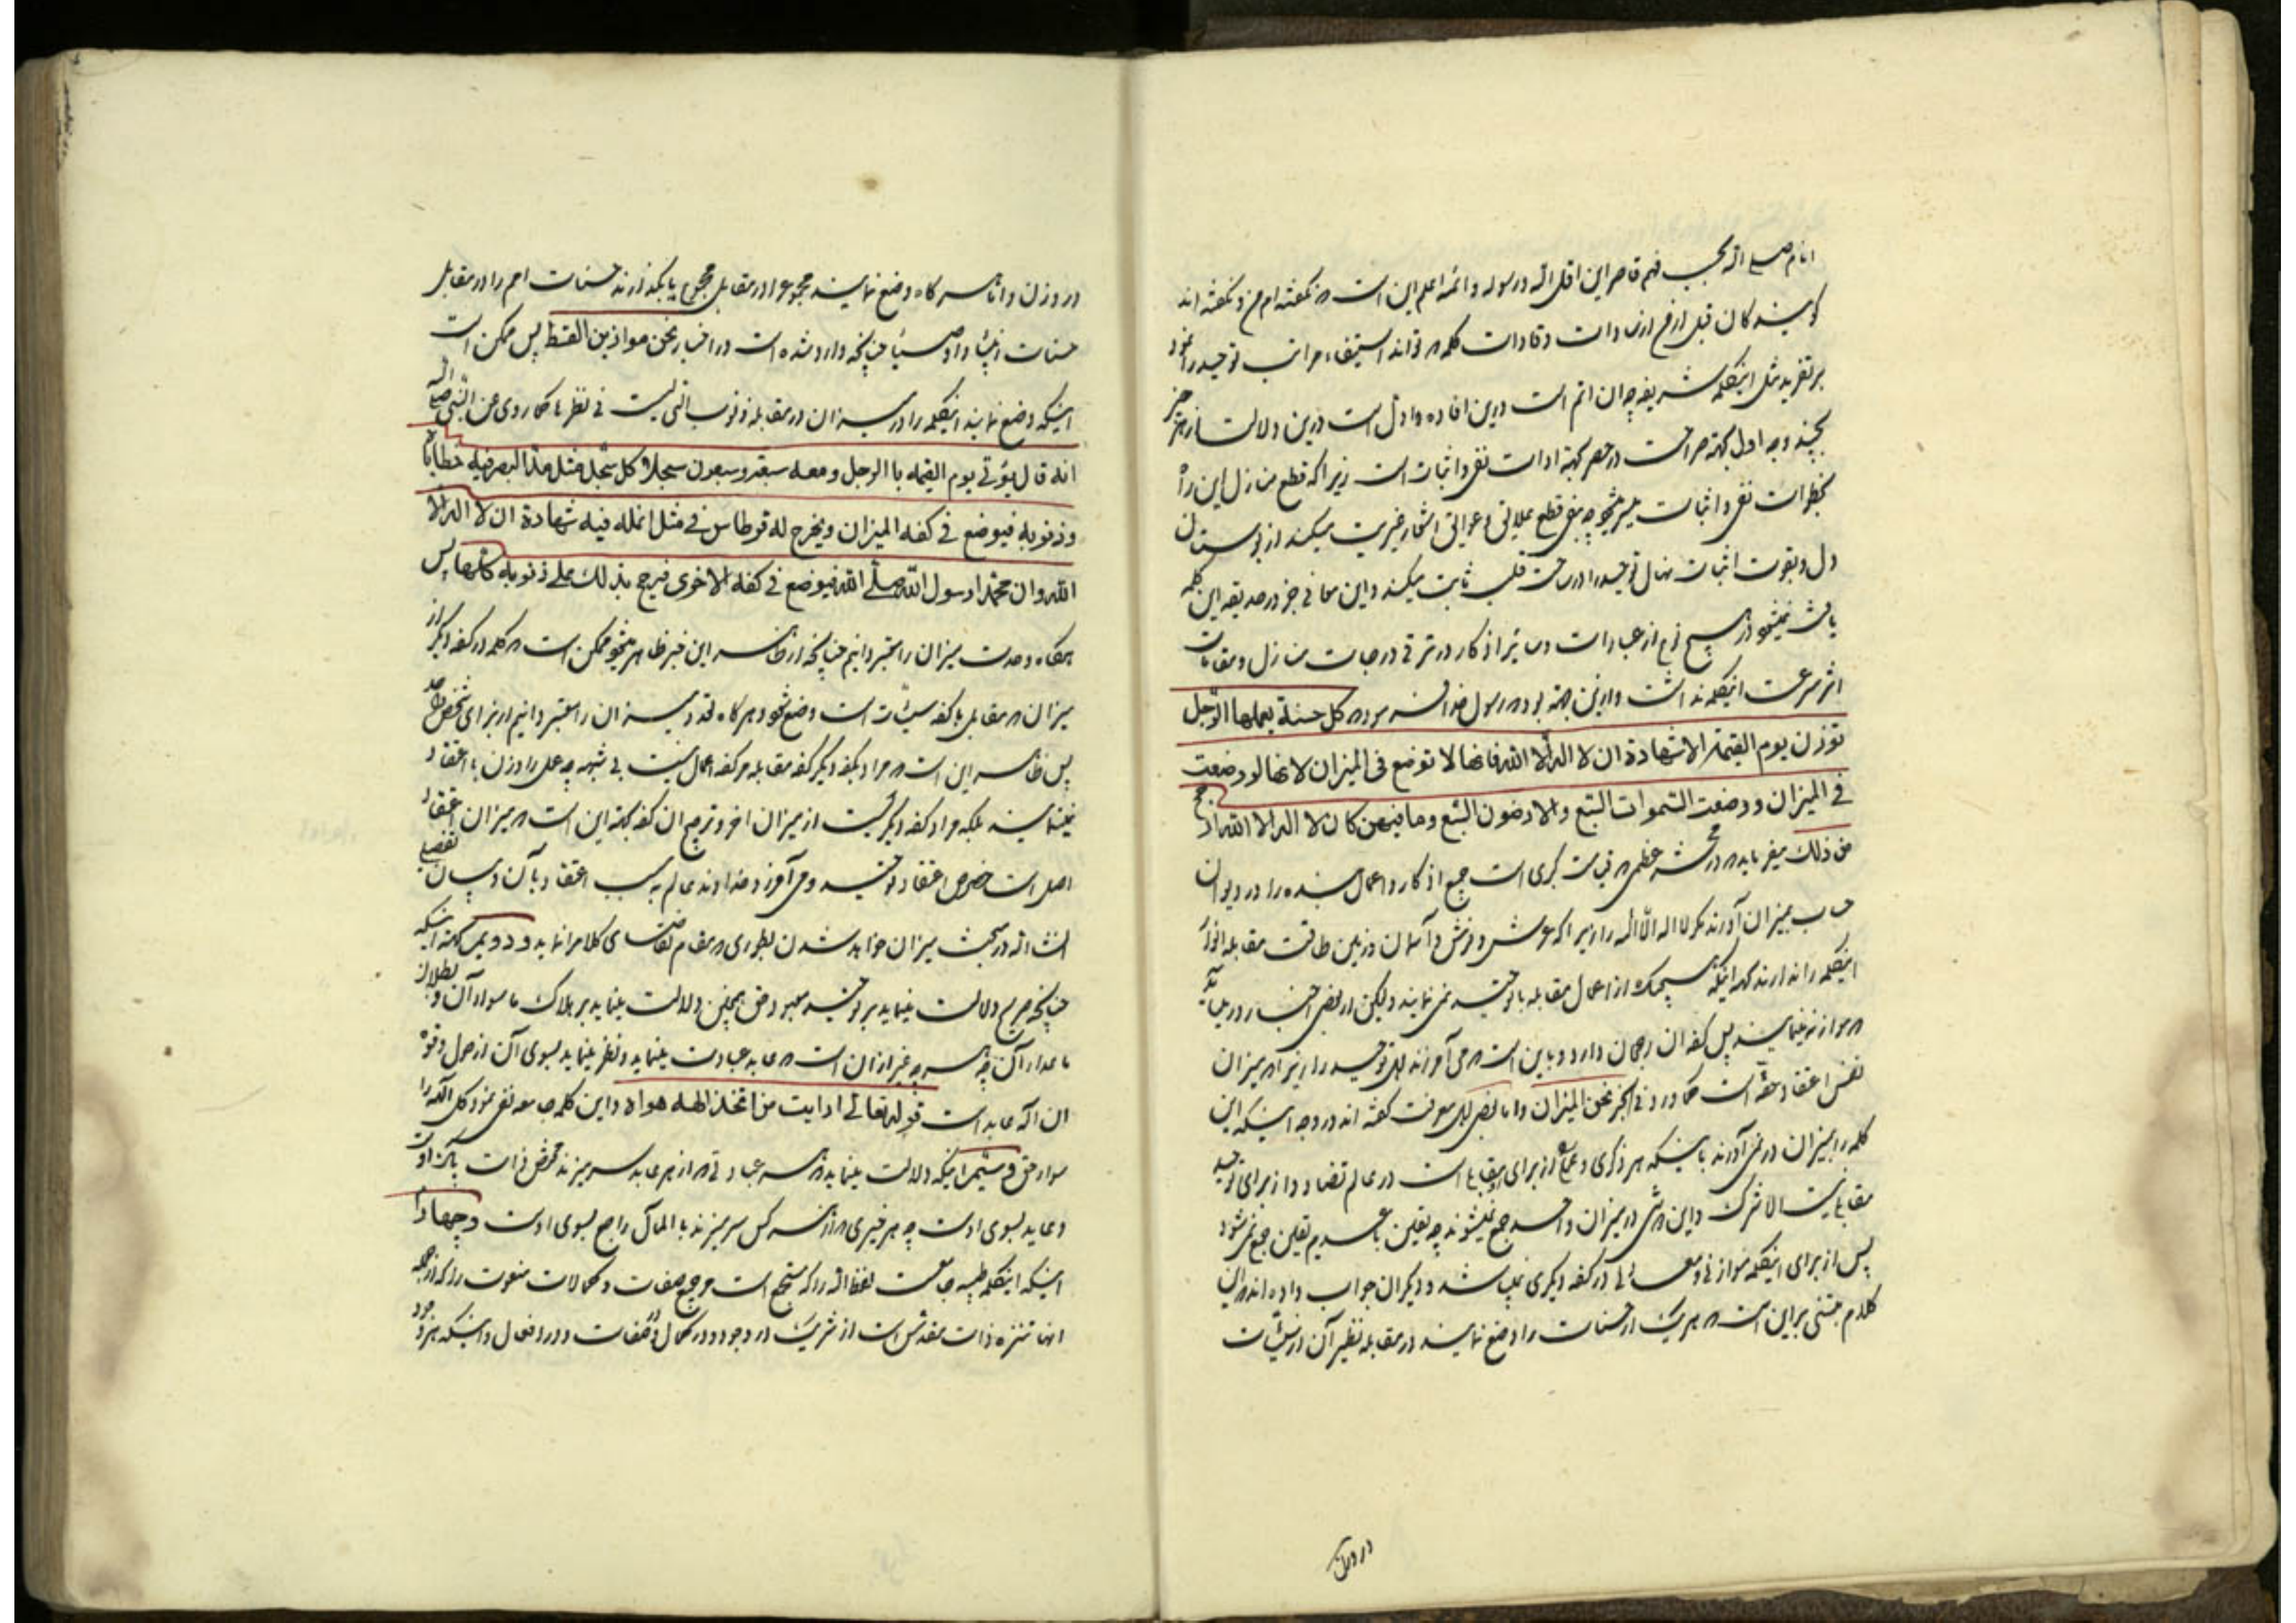 انام صلی الله بحسب فهم قاصر این اقل الله و رسوله و ائمه اعلم این است که نگفته ام من و نگفته اند
گویندگان قبل از من از سادات و قادات کلمه که تواند استیفاء مراتب توحید را نمود
بر تفرید مثل اینکلمه شریفه چه ان اتم است درین افاده و ادل است درین دلالت از هر چیز
بچند وجه اول بجهة صراحت در حصر بجهة ادات نفی و اثبات است زیرا که قطع منازل این راه
بخطوات نفی و اثبات میسر میشود چه نفی قطع علایق و عوایق اشجار غیریت میکند از بوستان
دل و بقوت اثبات نهال توحید را در ساحت قلب ثابت میکند و این معانی جز در حدیقه این کلمه
یافت نمیشود از هیچ نوع از عبارات و تاثیر اذکار در ترقی درجات منازل و مقامات
اثر سرعت اینکلمه نداشت و ازین جهة بود که رسول خدا فرموده کل حسنة یعملها الرجل
توزن یوم القیمة الا شهادة ان لا اله الا الله فانها لا توضع فی المیزان لانها لو وضعت
فی المیزان و وضعت السموات السبع والارضون السبع وما فیهن کان لا اله الا الله ارجح
من ذلک میفرماید که در محشر عظمی که قیامت کبری است جمیع اذکار و اعمال بنده را در دیوان
حساب بمیزان آورند مگر لا اله الا الله را زیرا که عرش و فرش و آسمان و زمین طاقت مقابله انوار
اینکلمه را ندارند بجهة اینکه هیچیک از اعمال مقابله با توحید نمی نمایند ولیکن از بعض اخبار در میآید
که موازنه مینمایند پس کفه ان رجحان دارد و باین است که می آمرزند اهل توحید را زیرا که میزان
نفس اعتقاد حقه است کما ورد فی الخبر نحن المیزان و اما بعض اهل معرفت گفته اند در وجه اینکه این
کلمه را بمیزان در نمی آورند باینکه هر ذکری و عملی از برای او مقابلی است در عالم تضاد و از برای توحید
مقابلی نیست الا شرک و این هر دو در میزان واحد جمع نمیشوند چه یقین با عدیم یقین جمع نمیشود
پس از برای اینکلمه موازنی و معادلی در کفه دیگری نمیباشد و دیگران جواب داده اند که این
کلام مبتنی بر این است که هر یک از حسنات را وضع نمایند در مقابله نظیر آن از سیئات
در وزن
در وزن و اما هر گاه وضع نمایند مجموع را در مقابل مجموع یا بگذارند حسنات امم را در مقابل
حسنات انبیاء و اوصیاء چنانچه وارد شده است در اخبار نحن موازین القسط پس ممکن است
اینکه وضع نمایند اینکلمه را در میزان در مقابله ذنوب التی لیست فی نظرها کما روی عن النبی صلی الله
انه قال یؤتی یوم القیمه با الرجل و معه سبعة وسبعون سجلا وکل سجل مثل مد البصر فیه خطایاه
وذنوبه فیوضع فی کفه المیزان ویخرج له قرطاس فی مثل انمله فیه شهادة ان لا اله الا
الله وان محمدا رسول الله صلی الله فیوضع فی کفه الاخری فیرجح بذلک علی ذنوبه کلها پس
هرگاه وحدت میزان را معتبر دانیم چنانچه از ظاهر این خبر ظاهر میشود ممکن است که کلمه در کفه دیگر از
میزان که مقابل با کفه سیئات است وضع شود و هر گاه تعدد میزان را معتبر دانیم از برای شخص واحد
پس ظاهر این است که مراد بکفه دیگر کفه مقابله هر کفه اعمال نیست بی شبهه چه عمل را وزن با اعتقاد
نمینمایند بلکه مراد کفه دیگریست از میزان اخر و ترجیح ان کفه بجهة این است که میزان اعتقاد
اصل است خصوص اعتقاد توحید و می آمرزد خداوند عالم به سبب اعتقاد بآن و بیان تفصیل
انشاء الله در مبحث میزان خواهد شدن بطوری که مقام تقاضای کلام را نماید و دویم بجهة اینکه
چنانچه صریح دلالت مینماید بر توحید معبود حق همچنین دلالت مینماید بر هلاک ما سوا آن و بطلان
ما عدا آن چه هر چه غیر از ان است که عابد عبادت مینماید و نظر مینماید بسوی آن از حول و قوه
ان اله عابد است قوله تعالی ارایت من اتخذ الهه هواه و این کلمه جامعه نفی نمود کل الهه را
سوا حق و سیم اینکه دلالت مینماید که هر عبادتی که از هر عابد سر میزند مختص ذات پاک اوست
و عاید بسوی اوست چه هر خیری که از هر کس سر میزند با المآل راجع بسوی اوست و چهارم
اینکه اینکلمه طیبه جامعست لفظ الله را که مستجمع است مر جمیع صفات و کمالات منعوت را که از جمله
انها تنزه ذات مقدس است از شریک در وجود و در کمال و صفات و در افعال و اینکه هر وجود